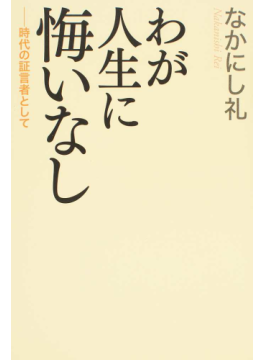 なかにし礼
Nakanishi Rei
わが
人生に
悔いなし
——時代の証言者として